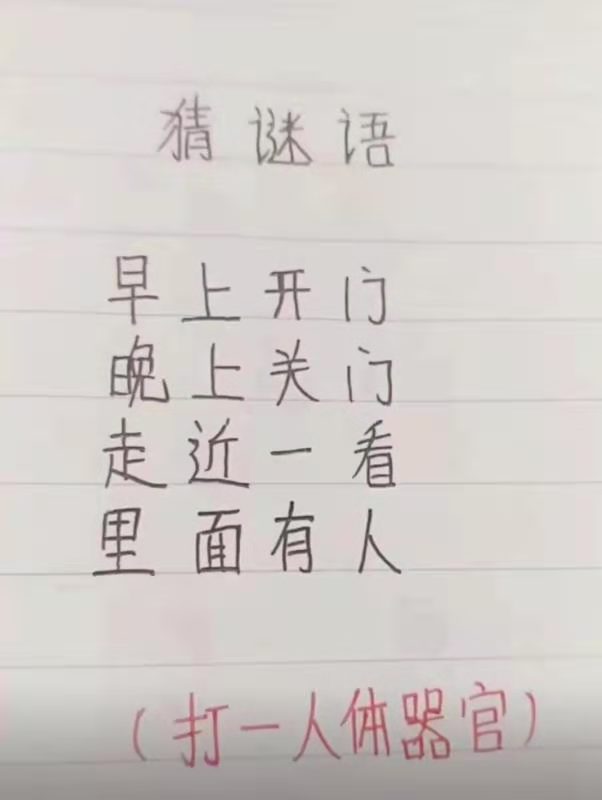 猜谜语
早上开门
晚上关门
走近一看
里面有人
（打一人体器官）